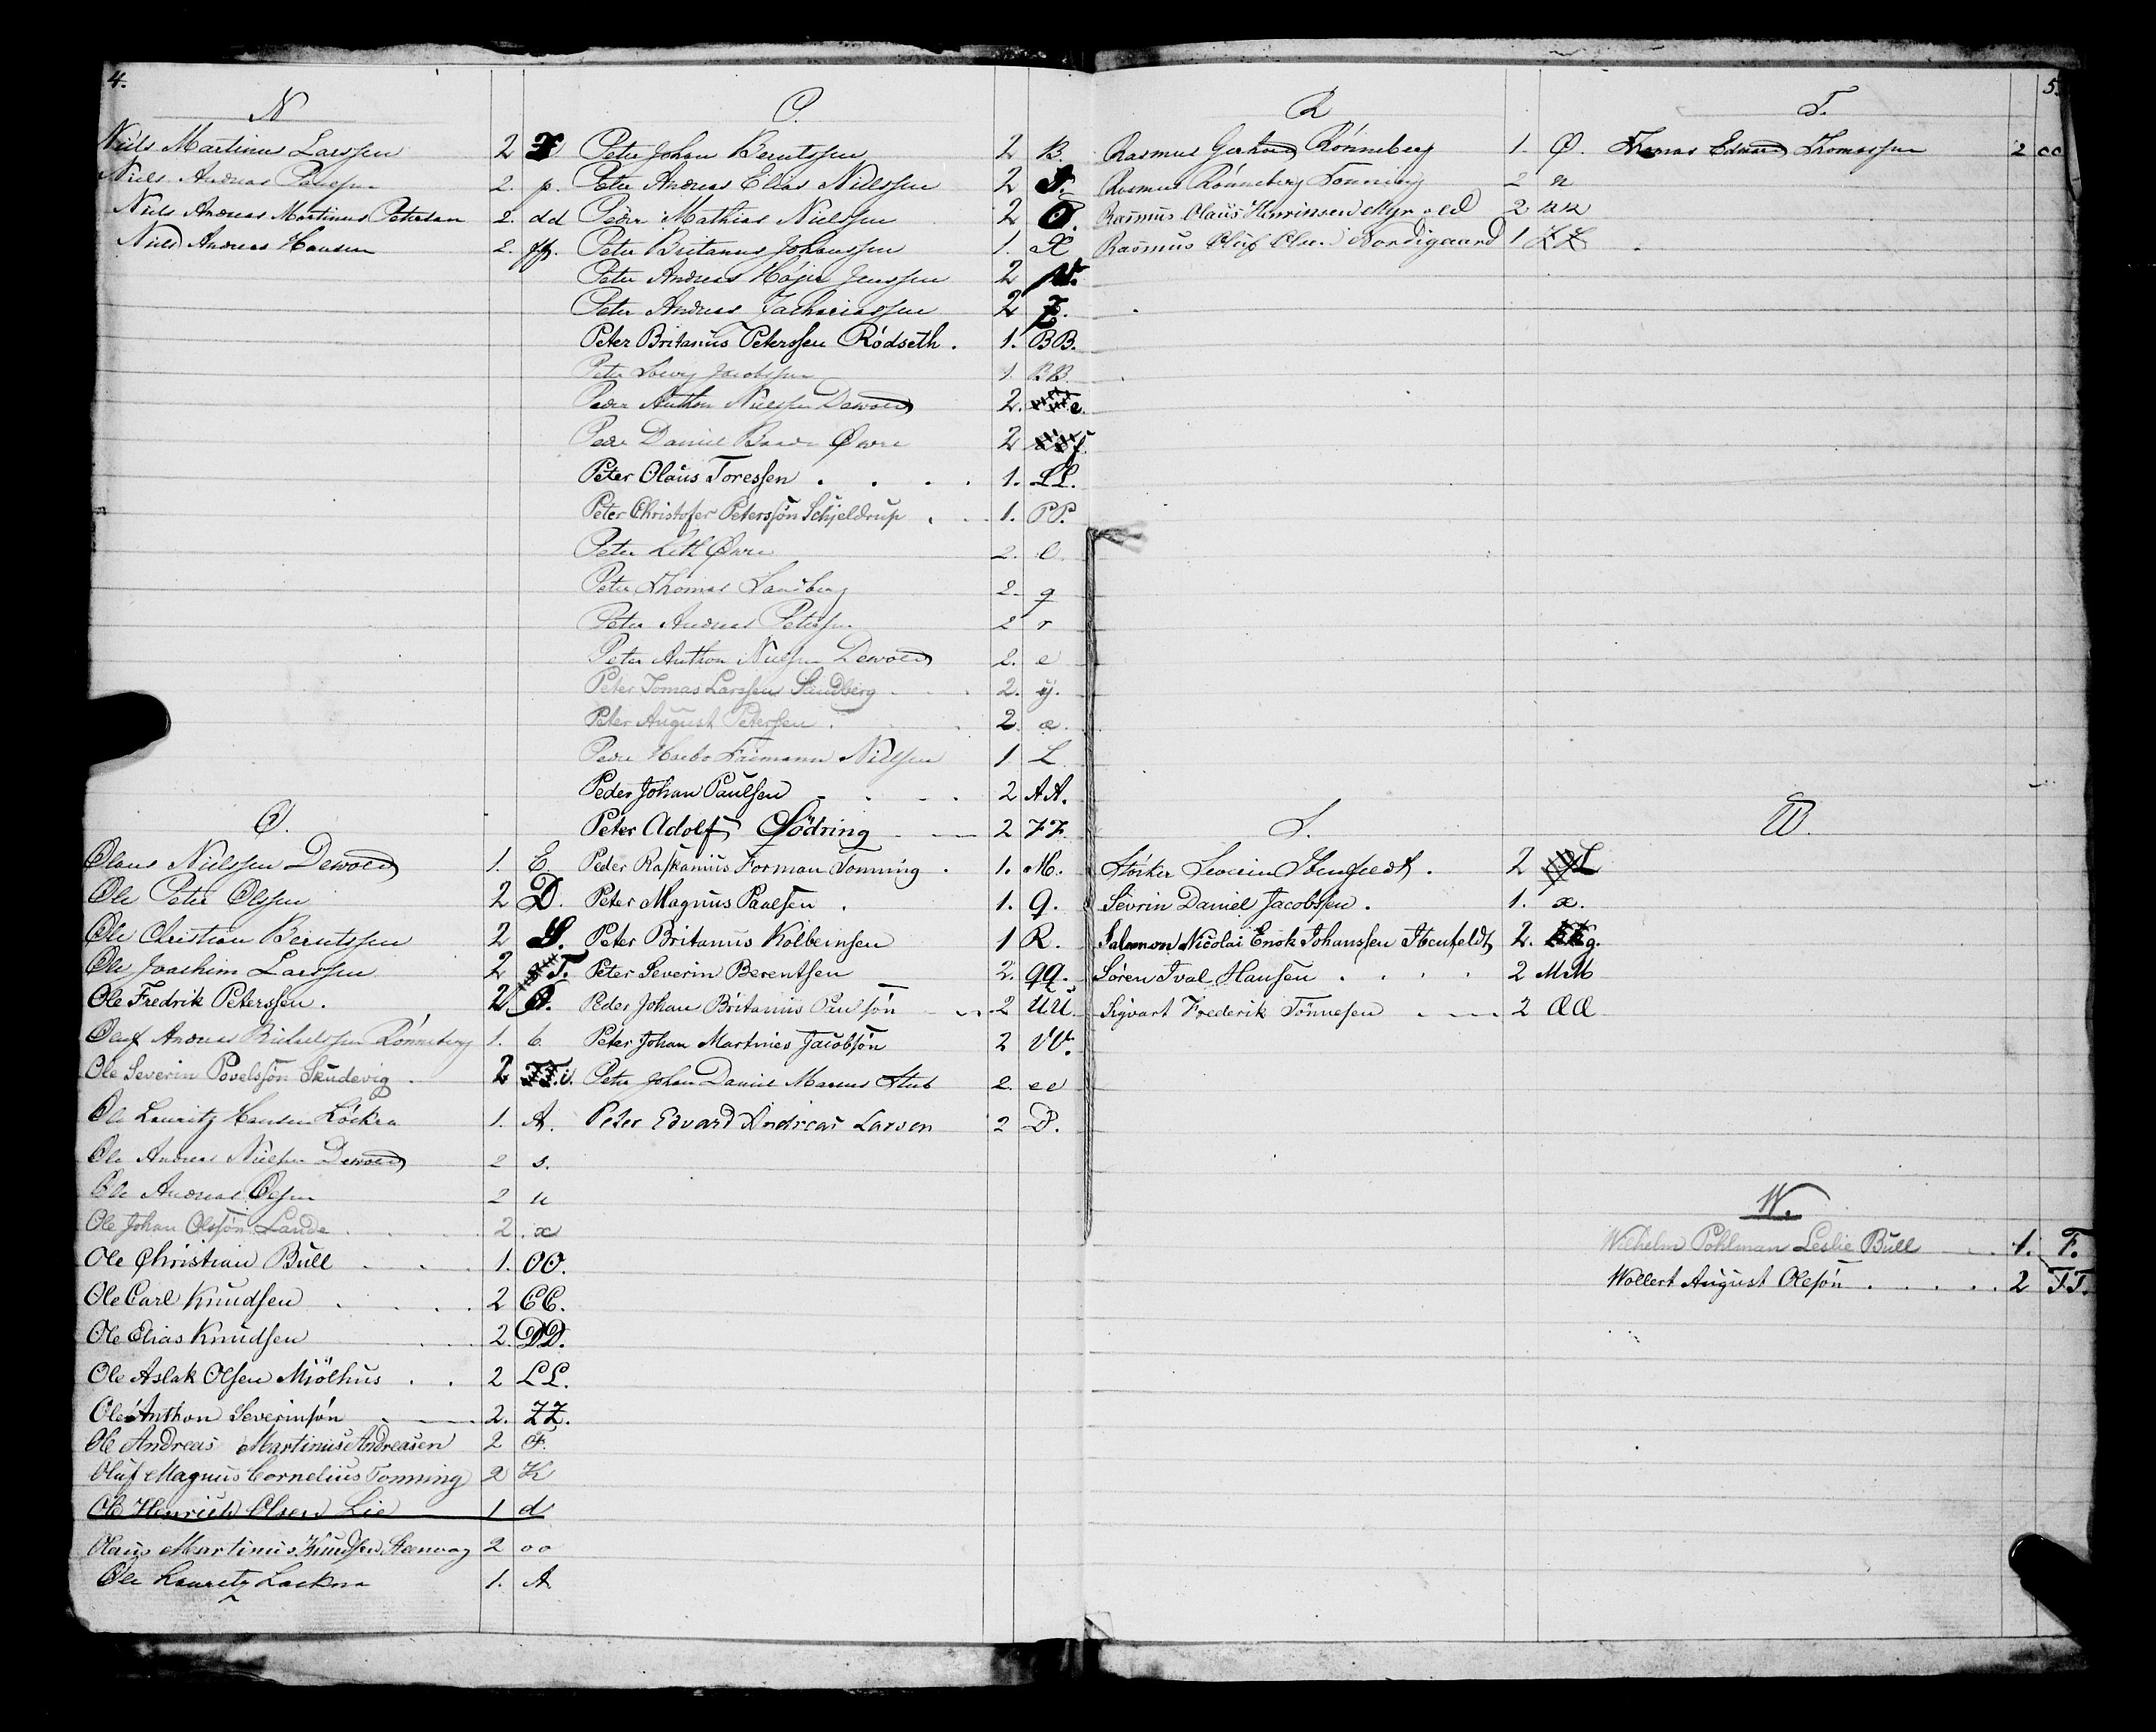 4.
N
Niels Martinus Larssen 2
Niels Andreas Paulsen 2. p.
Niels Andreas Martinus Petersen 2. dd
Niels Andreas Hansen 2. ff.
O.
Olaus Nielssen Dewold 1. E.
Ole Peter Olssen 2 D.
Ole Christian Berntssen 2 S.
Ole Joachim Larssen 2 T.
Ole Fredrik Peterssen. 2 O.
Oluf Andreas Rønneberg 1. b.
Ole Severin Povelssön Skudevig . 2 i.
Ole Lauritz Hansen Löckra 1. A.
Ole Andreas Nielsen Dewold 2 s.
Ole Andreas Olsen 2 u
Ole Johan Olssön Lande 2. x
Ole Christian Bull 1. OO.
Ole Carl Knudsen 2 CC.
Ole Elias Knudsen 2. DD.
Ole Aslak Olsen Miölhus . . 2 LL.
Ole Anthon Severinsön 2. ZZ.
Ole Andreas Martinus Andreasen 2 F.
Oluf Magnus Cornelius Tonning 2 K
Ole Henrick Olsen Lie 1 d
Olaus Martinus Knudsen Steenvag 2 oo
Ole Lauritz Lockra 1. A
P.
Peter Johan Berntssen 2 B.
Peter Andreas Elias Nielssen 2 S.
Peder Mathias Nielssen 2 O.
Peter Britanus Johanssen 1. X
Peter Andreas Høyer Jenssen 2 W.
Peter Andreas Zachariassen 2 Z.
Peter Britanius Peterssen Rödseth. 1. BB.
Peter Jacobssen 1. BB.
Peder Anthon Nielssen Dewold 2. e.
Peder Daniel Øwre 2 f.
Peter Olaus Toressen . . . . 1. LL.
Peter Christofer Peterssön Schjeldrup . 1. PP.
Peter Øwre 2. O.
Peter Thomas Sandberg 2. q
Peter Andreas Petersen 2 r
Peter Anthon Nielsen Dewold 2. e
Peter Tomas Larssen Sandberg 2. y.
Peter August Peterssen. 2 æ.
Peder Nielsen 1 L
Peder Johan Paulsen 2 AA.
Peter Adolf Södring 2 ZZ
Peder Raskanius Forman Tonning . 1. M.
Peter Magnus Paulsen . 1. Q.
Peter Britanus Kolbeinsen 1 R.
Peter Severin Berentsen 2. qq.
Peder Johan Britanius Paulsön 2 UU.
Peter Johan Martines Jacobsön 2 VV.
Peter Johan Daniel Marcus Stub 2. ee
Peter Edvard Andreas Larsen 2 P.
5
R
Rasmus Gerhard Rønneberg 1. Ø.
Rasmus Rønneberg Tonning 2 n
Rasmus Olaus Henriksen 2 nn
Rasmus Oluf Nordigaard 1 ZZ
S.
Störker Severin Ibenfeldt . 2 L
Sevrin Daniel Jacobssen. 1. x.
Salamon Nicolai Enok Johanssen Ibenfeldt 2. g.
Sören Ival Hansen . . . . 2 MM
Sigvart Frederik Tönnesen 2 ÆÆ
T.
Thomas Edvard Thomassen 2 cc
W.
Wilhelm Pohlman Leslie Bull 1. F.
Wollert August Olesön . . . . . 2 TT.